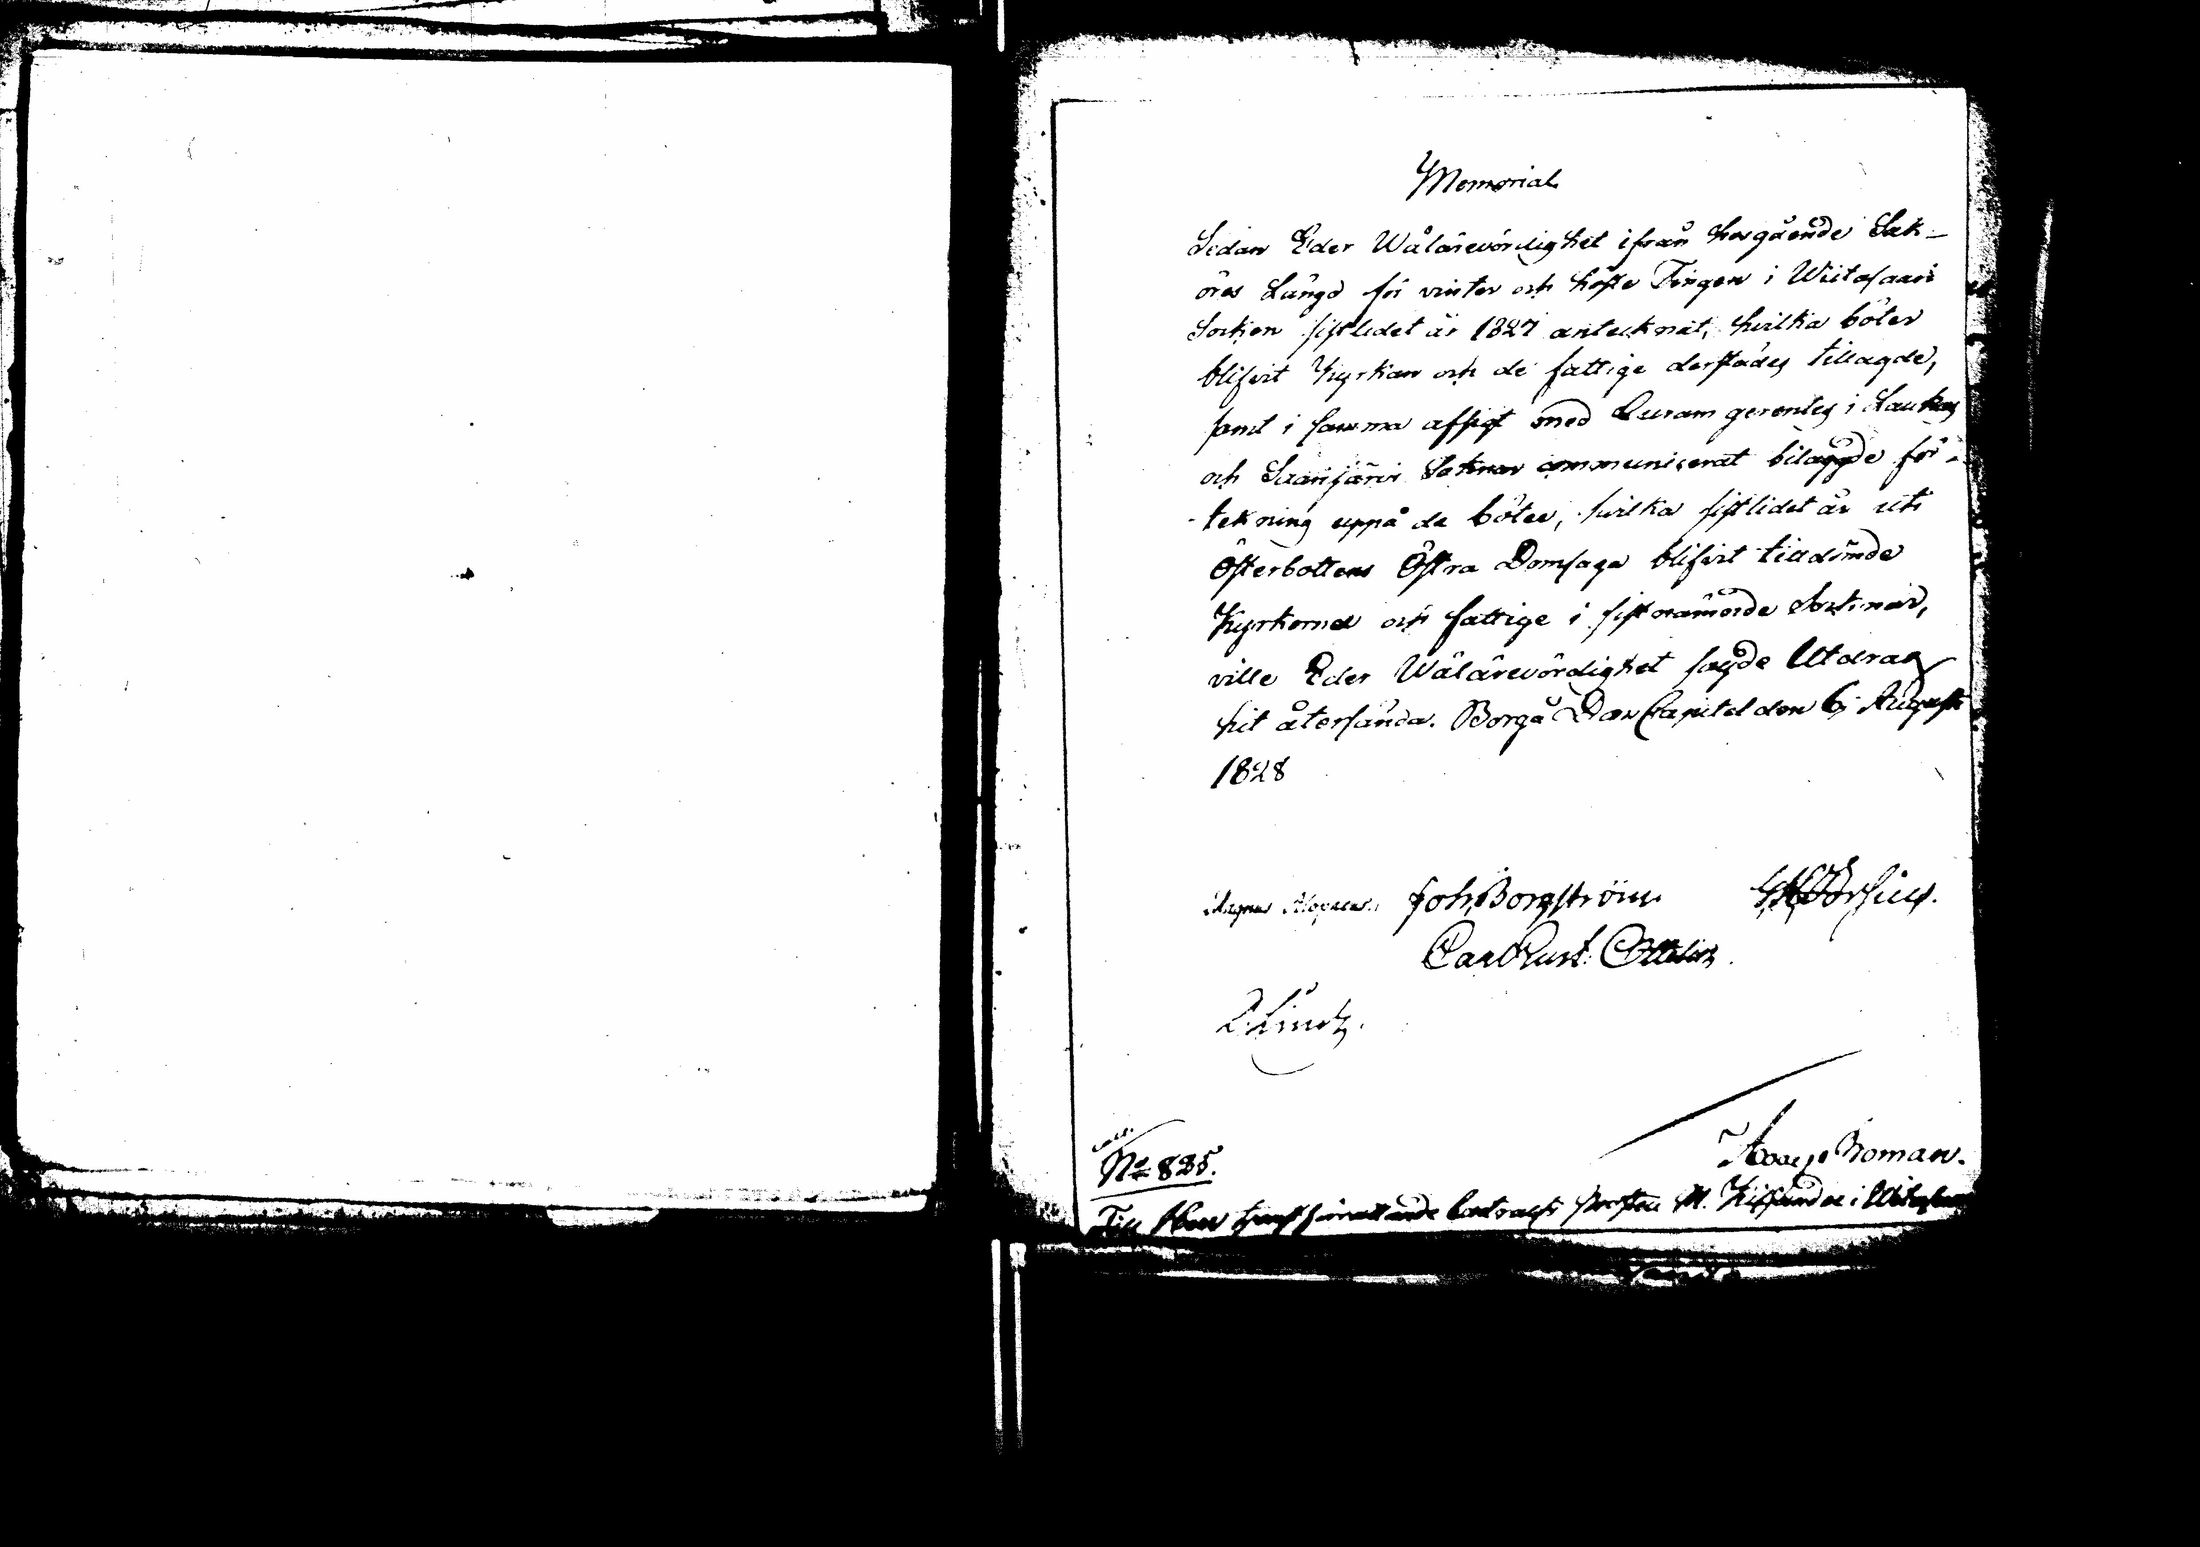 Memorial
Sedan Eder Wälärevördighet ifrån hosgående Sak-
öres Längd för vinter och höste Tingen i Wiitasaari
Socken sistledet år 1827 antecknat, hvilka böter
blifvit Kyrkan och de fattige derstädes tillagde,
samt i samma afsigt med Curam gerentes i Laukas
och Saarijärvi Soknar communicerat bilagde för-
tekning uppå de böter, hvilka sistlidet år uti
Österbottens Östra Domsaga blifvit tilldömde
Kyrkorna och fattige i sistnämnde Soknar,
ville Eder Wälärevördighet sagde Utdrag
hit återsända. Borgå Dom Capitel den 6 Augusti
1828
Magnus Alopaeus. Joh. Borgström
Carl Gust. Ottelin.
No 825.
Roman.
Till Contracts Prosten M. i